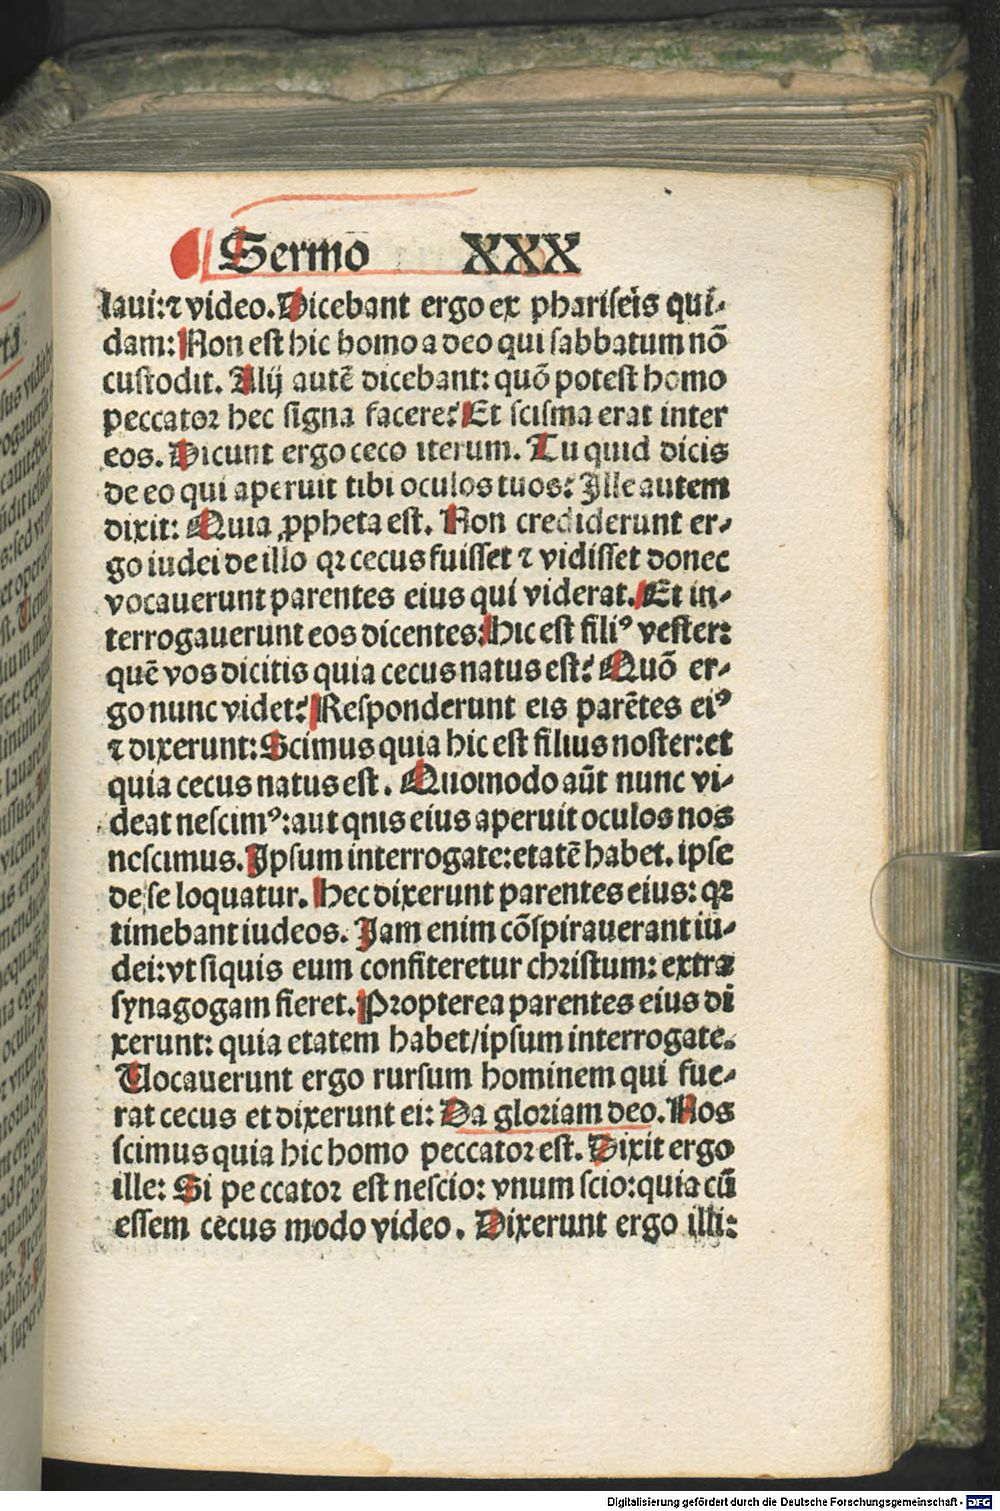 Sermo XXX
laui:⁊ video.Dicebant ergo ex phariſeis qui⸗
dam: Non eſt hic homo a deo qui ſabbatum nō
cuſtodit. Alij autē dicebant: quō poteſt homo
peccatoꝛ hec ſigna facere? Et ſciſma erat inter
eos. Dicunt ergo ceco iterum. Tu quid dicis
de eo qui aperuit tibi oculos tuos? Ille autem
dixit: Quia ꝓpheta eſt. Non crediderunt er⸗
go iudei de illo qꝛ cecus fuiſſet ⁊ vidiſſet donec
vocauerunt parentes eius qui viderat. Et in⸗
terrogauerunt eos dicentes: hic eſt filiꝰ veſter:
quē vos dicitis quia cecus natus eſt? Quō er⸗
go nunc videt? Reſponderunt eis parētes eiꝰ
⁊ dixerunt: Scimus quia hic eſt filius noſter:et
quia cecus natus eſt. Quomodo aūt nunc vi⸗
deat neſcimꝰ:aut qnis eius aperuit oculos nos
neſcimus. Ipſum interrogate:etatē habet. ipſe
de ſe loquatur. hec dixerunt parentes eius: qꝛ
timebant iudeos. Jam enim cōſpirauerant iu⸗
dei:vt ſiquis eum confiteretur chꝛiſtum: extra
ſynagogam fieret. Propterea parentes eius di
xerunt: quia etatem habet/ipſum interrogate.
Uocauerunt ergo rurſum hominem qui fue⸗
rat cecus et dixerunt ei: Da gloꝛiam deo. Nos
ſcimus quia hic homo peccatoꝛ eſt. Dixit ergo
ille: Si pe ccatoꝛ eſt neſcio: vnum ſcio:quia cū
eſſem cecus modo video. Dixerunt ergo illi:
Digitalisierung gefördert durch die Deutsche Forschungsgemeinschaft - DFG